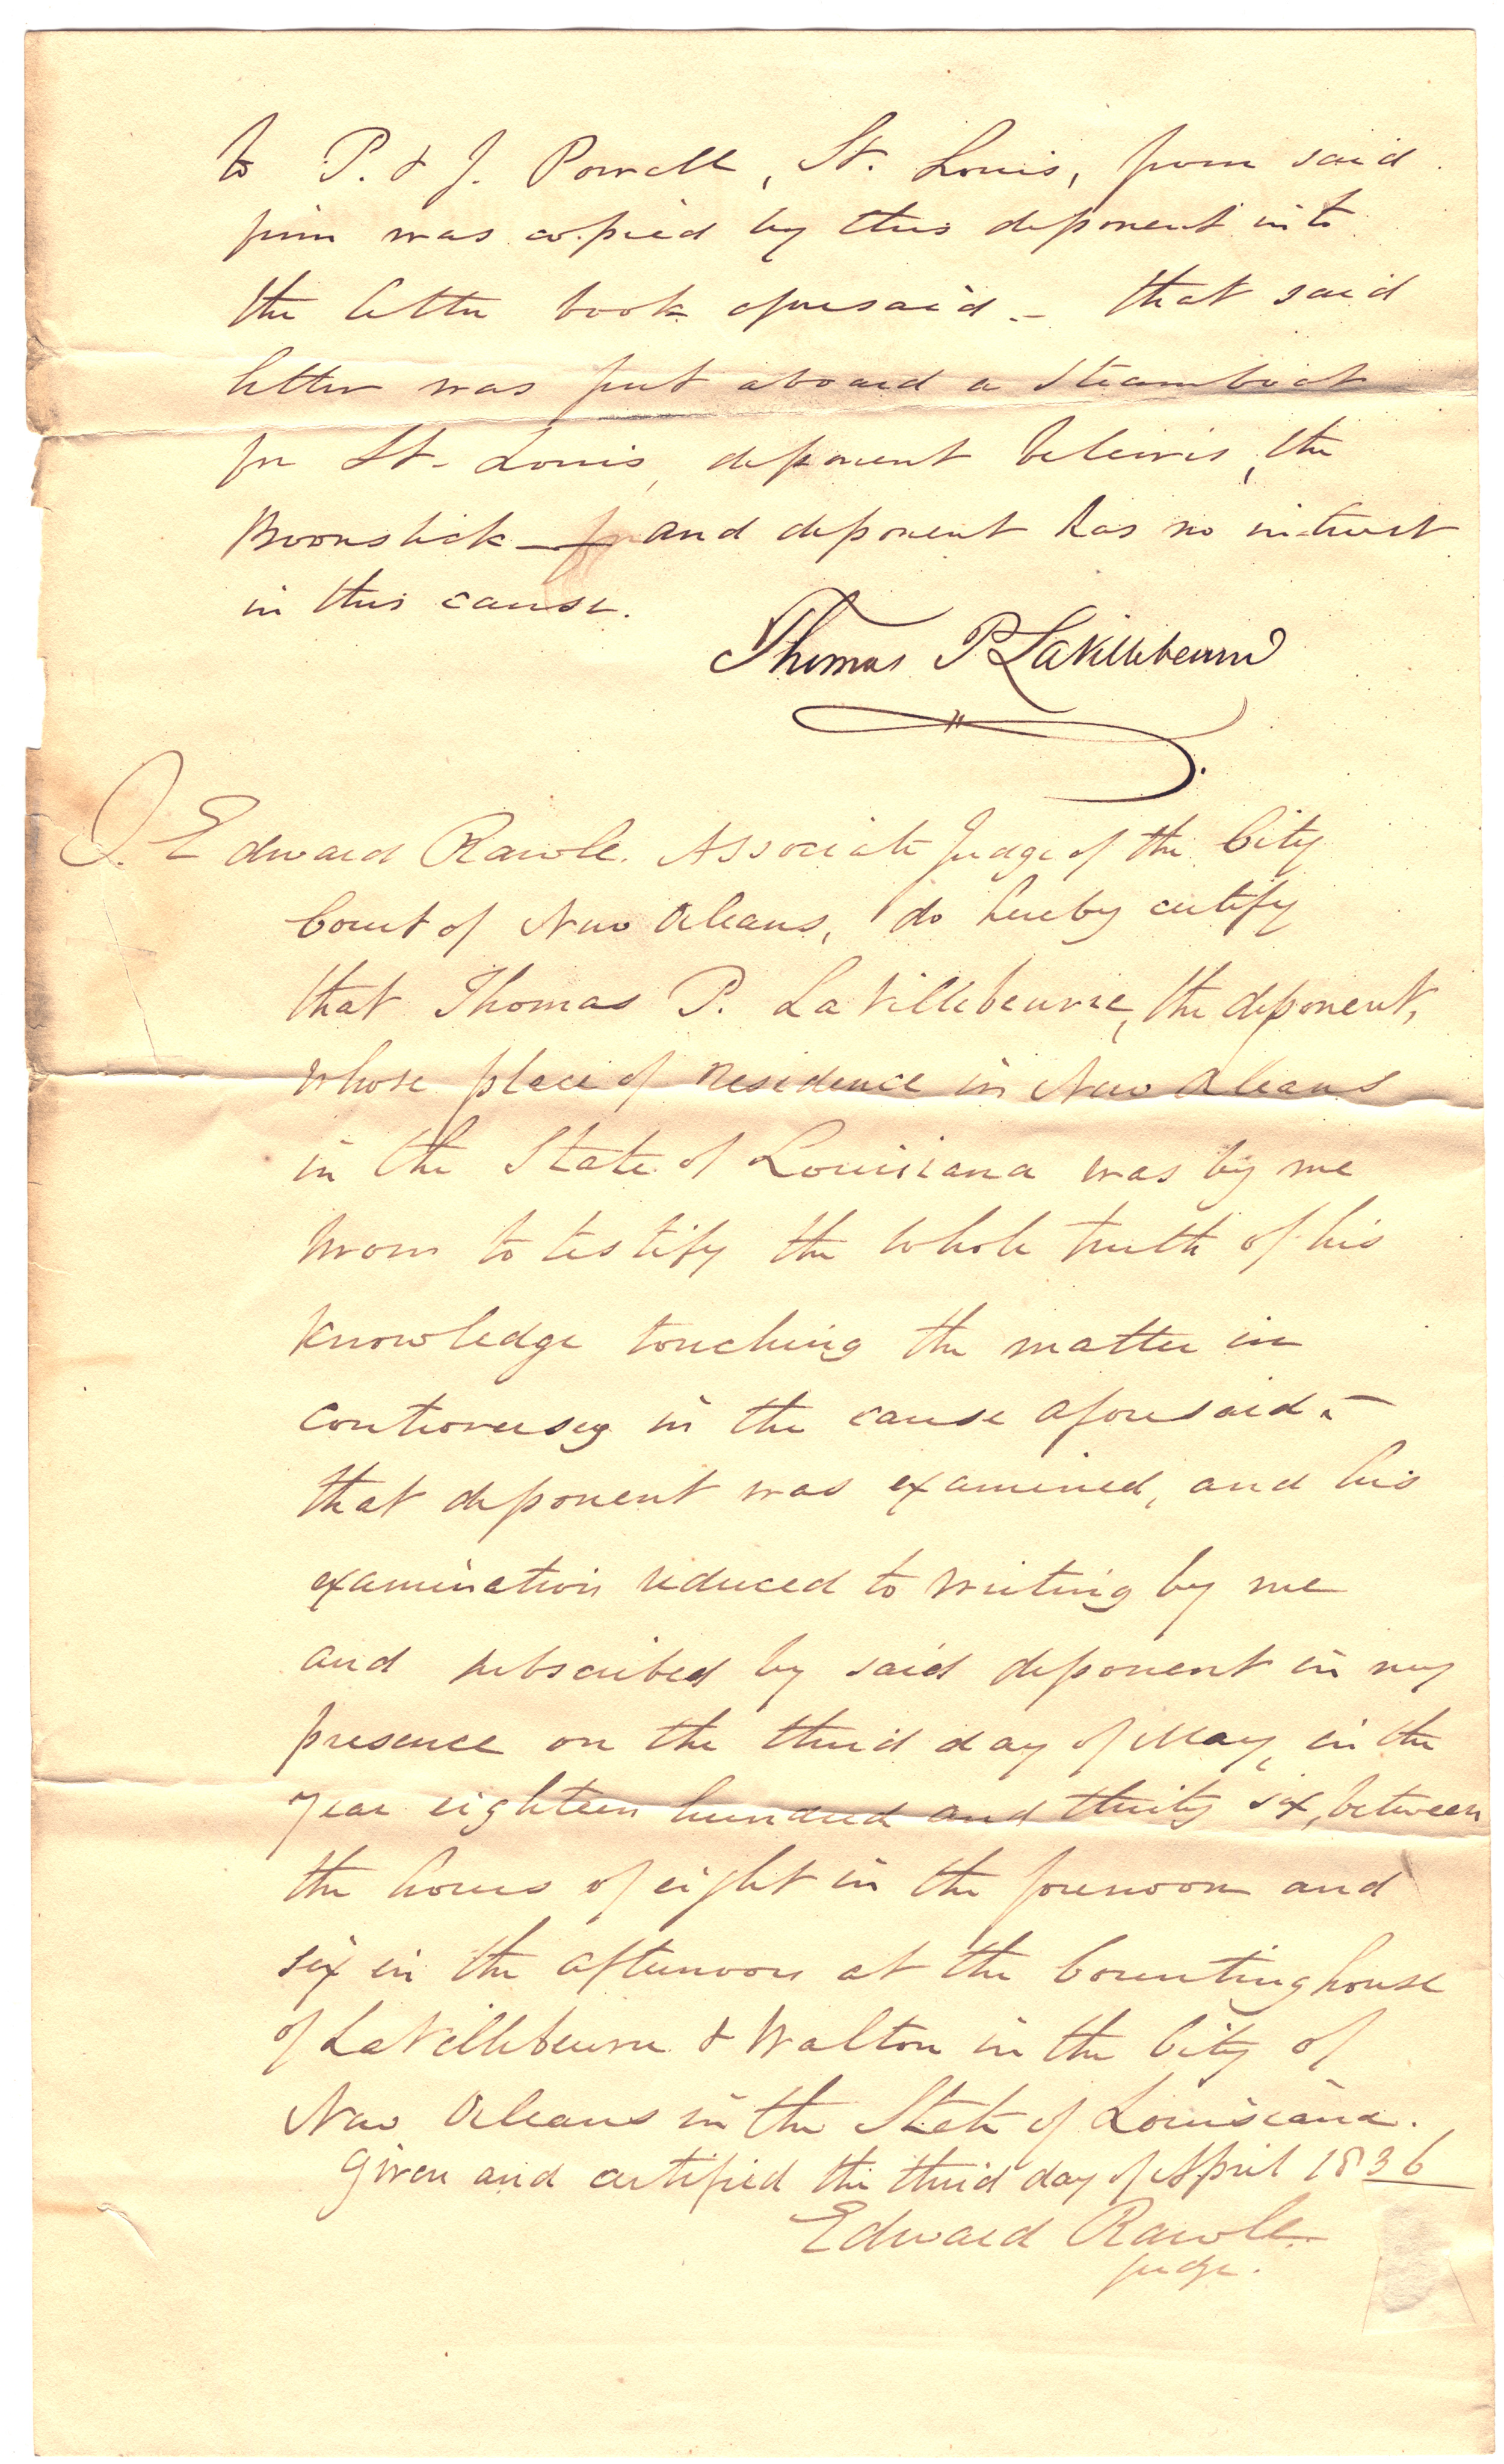 to P. & J. Powell, St. Louis, from said
firm was copied by this deponent into
the letter book aforesaid - that said
letter was put aboard a Steamboat
for St. Louis, deponent beleives, the
Boonslick - and deponent has no interest
in this cause.
Thomas P LaVillebeuvre
I. Edward Rawle. Associate Judge of the City
Court of New Orleans, do hereby certify
that Thomas P. LaVillebeuvre, the deponent,
whose place of residence in New Orleans
in the State of Louisiana was by me
sworn to testify the whole truth of his
knowledge touching the matter in
controversy in the cause aforesaid. -
that deponent was examined, and his
examination reduced to writing by me
and subscribed by said deponent in my
presence on the third day of May, in the
year eighteen hundred and thirty six, between
the hours of eight in the forenoon and
six in the afternoon at the Counting house
of LaVillebeuvre & Walton in the City of
New Orleans in the State of Louisiana.
Given and certified this third day of April 1836
Edward Rawle.
Judge.